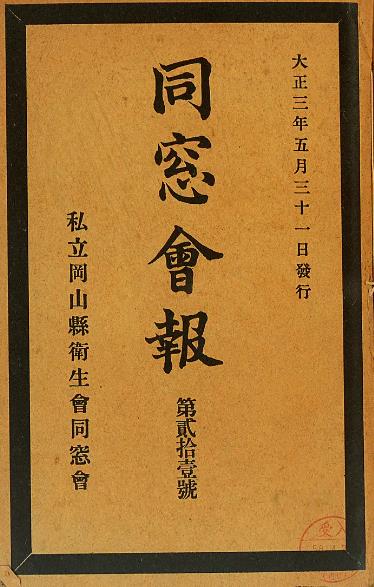 大正三年五月三十一日發行
同窓會報
第貳拾壹號
私立岡山縣衛生會同窓會